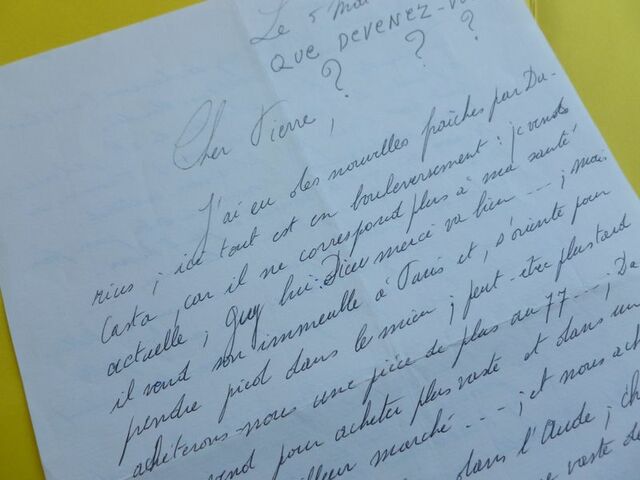 Le 5 Mai
QUE DEVENEZ-VO
? ? ?
Cher Pierre,
J'ai eu des nouvelles fraîches par Da-
rius ; ici tout est en bouleversement : je vends
Casta, car il ne correspond plus à ma santé
actuelle ; Guy lui Dieu merci va bien --- ; mais
il vend son immeuble à Paris et, s'oriente pour
prendre pied dans le mien ; peut-être plus tard
achèterons-nous une pièce de plus au 77 --- ; Da
vend pour acheter plus vaste et dans un
illeur marché --- ; et nous ach
dans l'Aude ; ch
vaste de